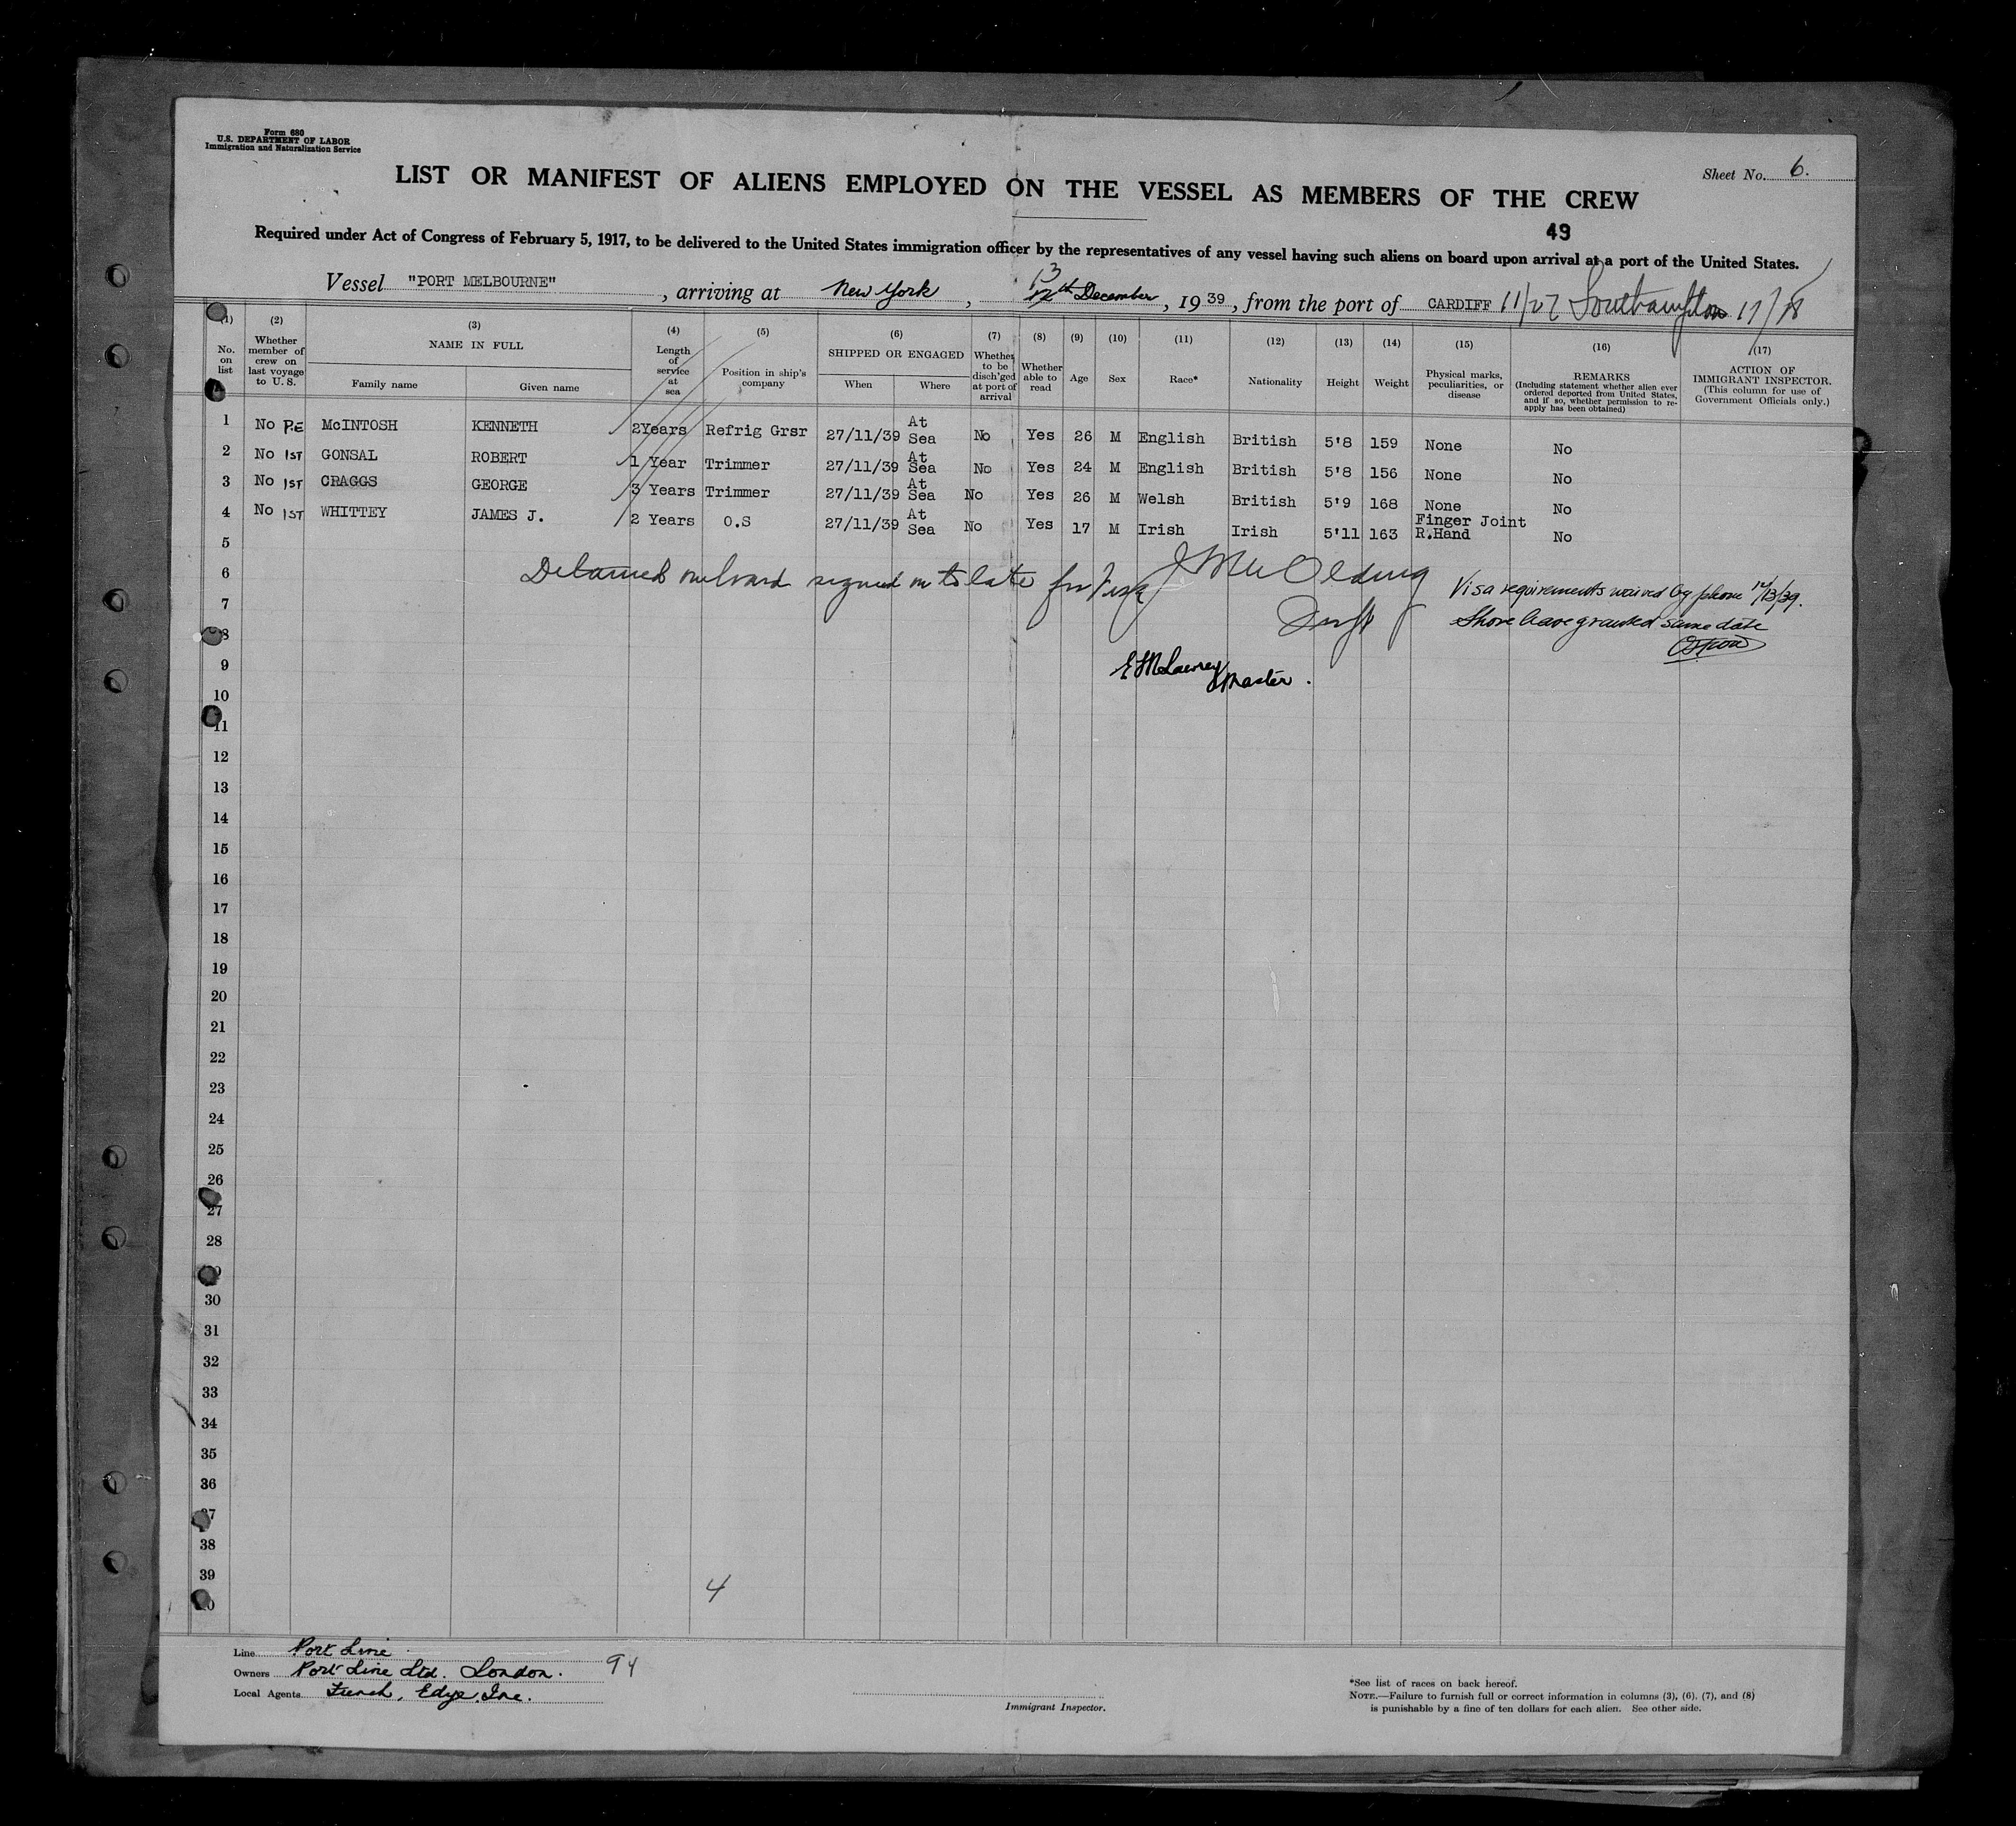 Form 680
U.S. DEPARTMENT OF LABOR
Immigration and Naturalization Service
Sheet No. 6.
LIST OR MANIFEST OF ALIENS EMPLOYED ON THE VESSEL AS MEMBERS OF THE CREW
49
Required under Act of Congress of February 5, 1917, to be delivered to the United States immigration officer by the representatives of any vessel having such aliens on board upon arrival at a port of the United States.
Vessel "PORT MELBOURNE", arriving at New York, 13 12th December, 1939, from the port of CARDIFF 11/27 Southampton 11/28
(1) No. on list
(2) Whether member of crew on last voyage to U. S.
(3) NAME IN FULL
Family name Given name
(4) Length of service at sea
(5) Position in ship's company
(6) SHIPPED OR ENGAGED
When Where
(7) Whether to be disch'ged at port of arrival
(8) Whether able to read
(9) Age
(10) Sex
(11) Race*
(12) Nationality
(13) Height
(14) Weight
(15) Physical marks, peculiarities, or disease
(16) REMARKS
(Including statement whether alien ever ordered deported from United States, and if so, whether permission to re-apply has been obtained)
(17) ACTION OF IMMIGRANT INSPECTOR.
(This column for use of Government Officials only.)
1 No P.E McINTOSH KENNETH 2Years Refrig Grsr 27/11/39 At Sea No Yes 26 M English British 5'8 159 None No
2 No 1ST GONSAL ROBERT 1 Year Trimmer 27/11/39 At Sea No Yes 24 M English British 5'8 156 None No
3 No 1ST CRAGGS GEORGE 3 Years Trimmer 27/11/39 At Sea No Yes 26 M Welsh British 5'9 168 None No
4 No 1ST WHITTEY JAMES J. 2 Years O.S 27/11/39 At Sea No Yes 17 M Irish Irish 5'11 163 Finger Joint R.Hand No
5
6 Detained onboard signed on to late for Visa
7 Visa requirements waived by phone 12/13/39.
8 Shore leave granted same date
9 Master.
10
11
12
13
14
15
16
17
18
19
20
21
22
23
24
25
26
27
28
29
30
31
32
33
34
35
36
37
38
39
40
4
Line Port Line
Owners Port Line Ltd. London. 94
Local Agents French, Edye Inc.
Immigrant Inspector.
*See list of races on back hereof.
NOTE.—Failure to furnish full or correct information in columns (3), (6), (7), and (8)
is punishable by a fine of ten dollars for each alien. See other side.